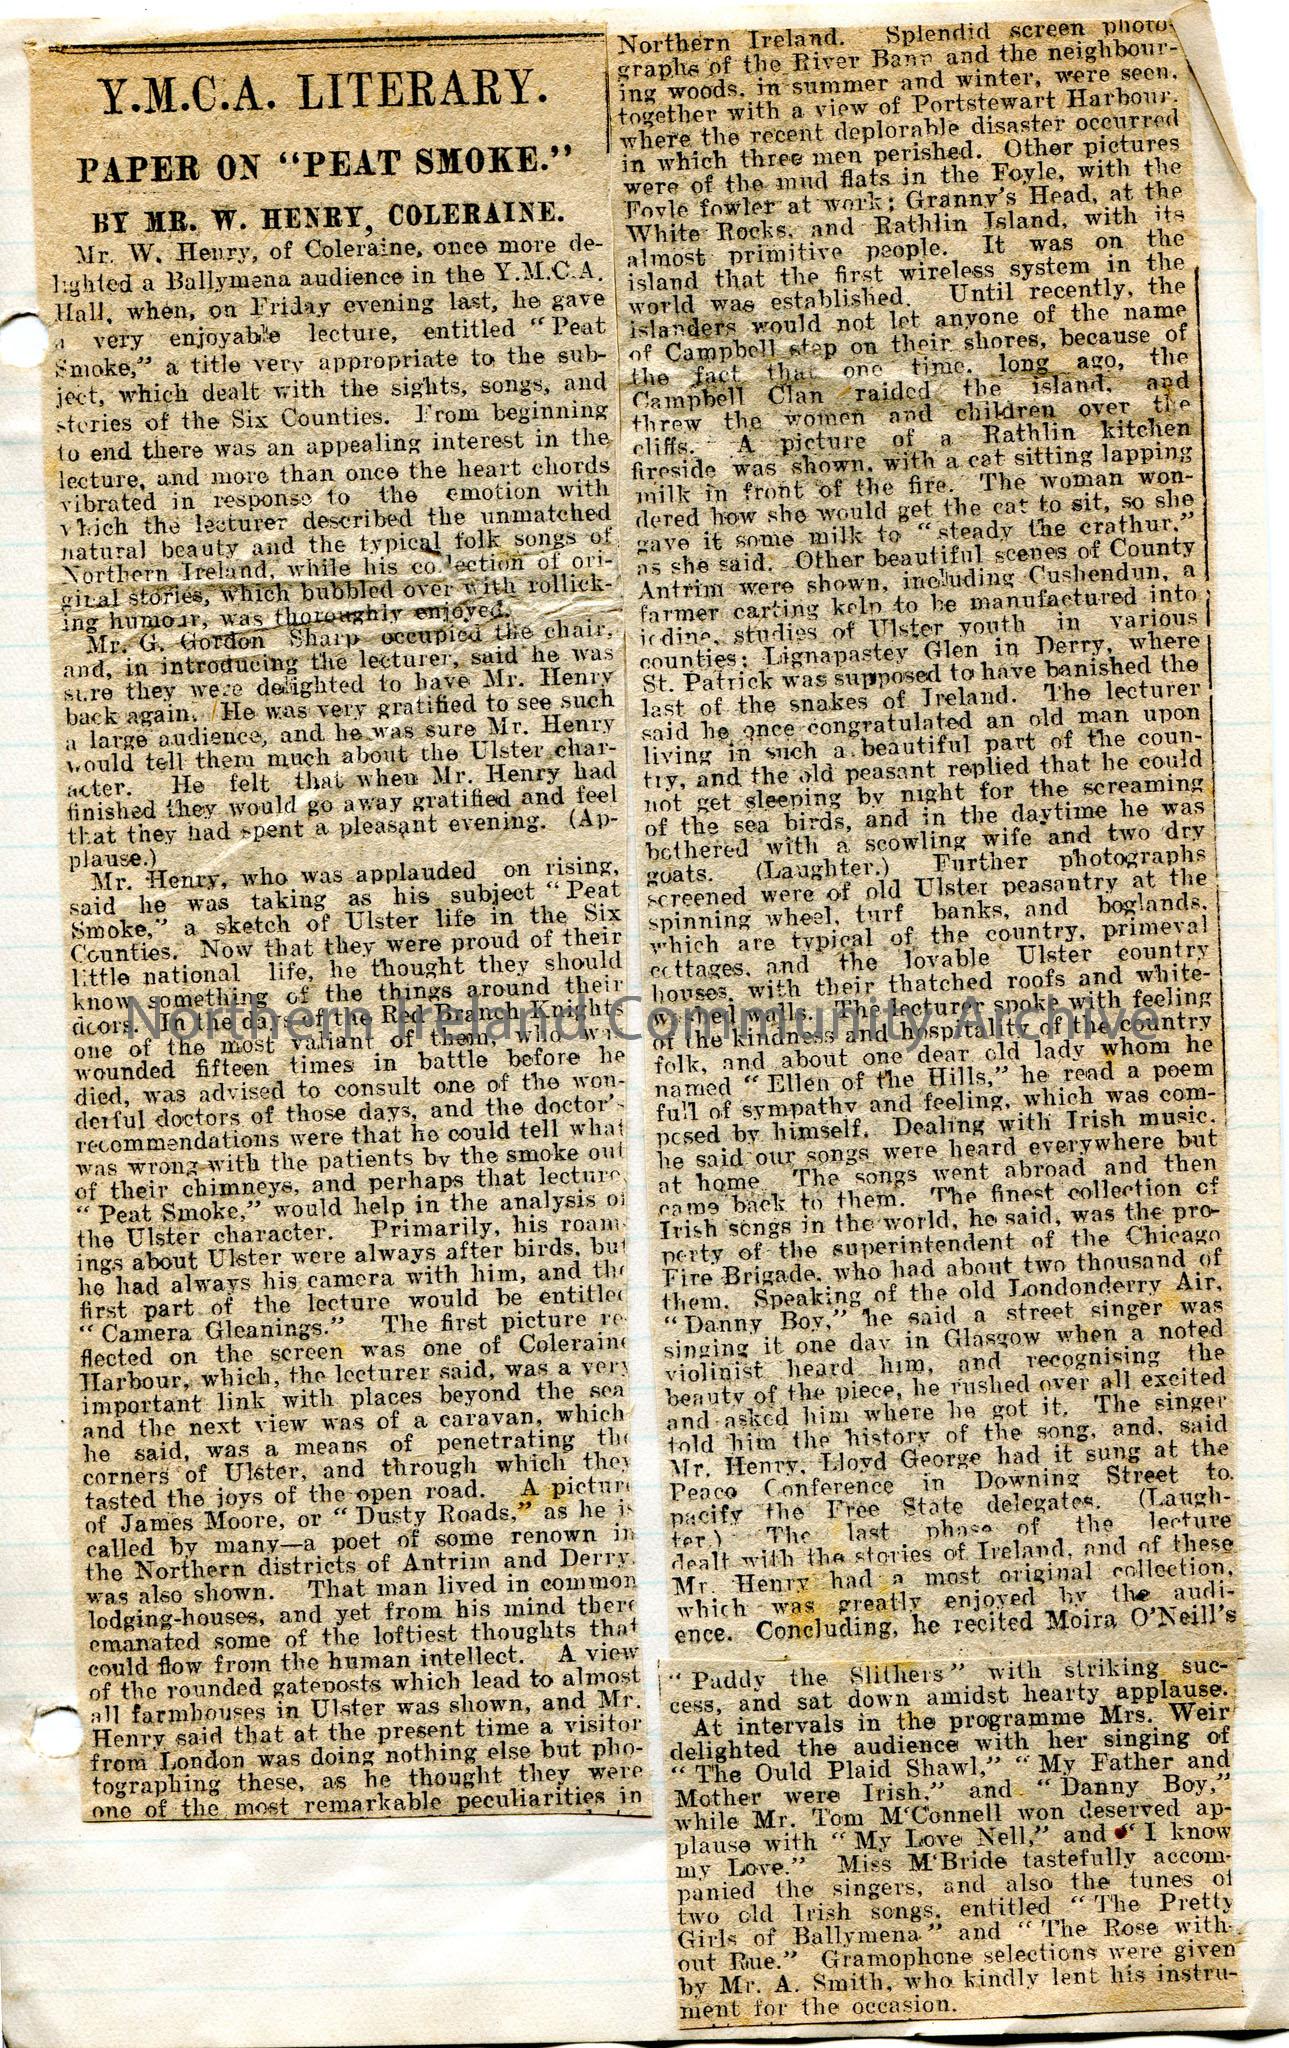 Y.M.C.A. LITERARY.
PAPER ON "PEAT SMOKE."
BY MR. W. HENRY, COLERAINE.
Mr. W. Henry, of Coleraine, once more de-
lighted a Ballymena audience in the Y.M.C.A.
Hall, when, on Friday evening last, he gave
a very enjoyable lecture, entitled "Peat
Smoke," a title very appropriate to the sub-
ject, which dealt with the sights, songs, and
stories of the Six Counties. From beginning
to end there was an appealing interest in the
lecture, and more than once the heart chords
vibrated in response to the emotion with
which the lecturer described the unmatched
natural beauty and the typical folk songs of
Northern Ireland, while his collection of ori-
ginal stories, which bubbled over with rollick-
ing humour, was thoroughly enjoyed.
Mr. G. Gordon Sharp occupied the chair,
and, in introducing the lecturer, said he was
sure they were delighted to have Mr. Henry
back again. He was very gratified to see such
a large audience, and he was sure Mr. Henry
would tell them much about the Ulster char-
acter. He felt that when Mr. Henry had
finished they would go away gratified and feel
that they had spent a pleasant evening. (Ap-
plause.)
Mr. Henry, who was applauded on rising,
said he was taking as his subject "Peat
Smoke," a sketch of Ulster life in the Six
Counties. Now that they were proud of their
little national life, he thought they should
know something of the things around their
doors. In the days of the Red Branch Knights
one of the most valiant of them, who was
wounded fifteen times in battle before he
died, was advised to consult one of the won-
derful doctors of those days, and the doctor's
recommendations were that he could tell what
was wrong with the patients by the smoke out
of their chimneys, and perhaps that lecture,
"Peat Smoke," would help in the analysis of
the Ulster character. Primarily, his roam-
ings about Ulster were always after birds, but
he had always his camera with him, and the
first part of the lecture would be entitled
"Camera Gleanings." The first picture re-
flected on the screen was one of Coleraine
Harbour, which, the lecturer said, was a very
important link with places beyond the sea
and the next view was of a caravan, which
he said, was a means of penetrating the
corners of Ulster, and through which they
tasted the joys of the open road. A picture
of James Moore, or "Dusty Roads," as he is
called by many—a poet of some renown in
the Northern districts of Antrim and Derry,
was also shown. That man lived in common
lodging-houses, and yet from his mind there
emanated some of the loftiest thoughts that
could flow from the human intellect. A view
of the rounded gateposts which lead to almost
all farmhouses in Ulster was shown, and Mr.
Henry said that at the present time a visitor
from London was doing nothing else but pho-
tographing these, as he thought they were
one of the most remarkable peculiarities in
Northern Ireland. Splendid screen photo-
graphs of the River Bann and the neighbour-
ing woods, in summer and winter, were seen,
together with a view of Portstewart Harbour,
where the recent deplorable disaster occurred
in which three men perished. Other pictures
were of the mud flats in the Foyle, with the
Foyle fowler at work; Granny's Head, at the
White Rocks, and Rathlin Island, with its
almost primitive people. It was on the
island that the first wireless system in the
world was established. Until recently, the
islanders would not let anyone of the name
of Campbell step on their shores, because of
the fact that one time, long ago, the
Campbell Clan raided the island, and
threw the women and children over the
cliffs. A picture of a Rathlin kitchen
fireside was shown, with a cat sitting lapping
milk in front of the fire. The woman won-
dered how she would get the cat to sit, so she
gave it some milk to "steady the crathur,"
as she said. Other beautiful scenes of County
Antrim were shown, including Cushendun, a
farmer carting kelp to be manufactured into
iodine, studies of Ulster youth in various
counties; Lignapastey Glen in Derry, where
St. Patrick was supposed to have banished the
last of the snakes of Ireland. The lecturer
said he once congratulated an old man upon
living in such a beautiful part of the coun-
try, and the old peasant replied that he could
not get sleeping by night for the screaming
of the sea birds, and in the daytime he was
bothered with a scowling wife and two dry
goats. (Laughter.) Further photographs
screened were of old Ulster peasantry at the
spinning wheel, turf banks, and boglands,
which are typical of the country, primeval
cottages, and the lovable Ulster country
houses, with their thatched roofs and white-
washed walls. The lecturer spoke with feeling
of the kindness and hospitality of the country
folk, and about one dear old lady whom he
named "Ellen of the Hills," he read a poem
full of sympathy and feeling, which was com-
posed by himself. Dealing with Irish music,
he said our songs were heard everywhere but
at home. The songs went abroad and then
came back to them. The finest collection of
Irish songs in the world, he said, was the pro-
perty of the superintendent of the Chicago
Fire Brigade, who had about two thousand of
them. Speaking of the old Londonderry Air,
"Danny Boy," he said a street singer was
singing it one day in Glasgow when a noted
violinist heard him, and recognising the
beauty of the piece, he rushed over all excited
and asked him where he got it. The singer
told him the history of the song, and, said
Mr. Henry, Lloyd George had it sung at the
Peace Conference in Downing Street to
pacify the Free State delegates. (Laugh-
ter.) The last phase of the lecture
dealt with the stories of Ireland, and of these
Mr. Henry had a most original collection,
which was greatly enjoyed by the audi-
ence. Concluding, he recited Moira O'Neill's
"Paddy the Slithers" with striking suc-
cess, and sat down amidst hearty applause.
At intervals in the programme Mrs. Weir
delighted the audience with her singing of
"The Ould Plaid Shawl," "My Father and
Mother were Irish," and "Danny Boy,"
while Mr. Tom M'Connell won deserved ap-
plause with "My Love Nell," and "I know
my Love." Miss M'Bride tastefully accom-
panied the singers, and also the tunes of
two old Irish songs, entitled "The Pretty
Girls of Ballymena" and "The Rose with-
out Rue." Gramophone selections were given
by Mr. A. Smith, who kindly lent his instru-
ment for the occasion.
Northern Ireland Community Archive